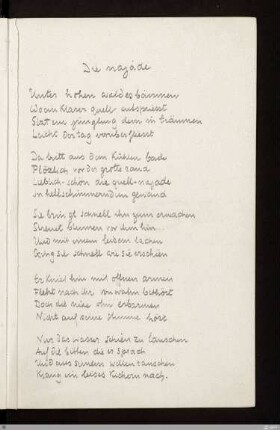 Die najade
Unter hohen waldesbäumen
Wo ein klarer quell entspriesst
Sitzt ein jüngling dem in träumen
Leicht der tag vorüberfliesst
Da tritt aus dem kühlen bade
Plötzlich vor der grotte rand
Lieblich-schön die quell-najade
In hellschimmerndem gewand
Sie bringt schnell ihn zum ermachen
Streuet blumen vor ihm hin..
Und mit einem leisen lachen
Ging sie schnell wie sie erschien
Er kniet hin mit offnen armen
Fleht nach ihr von wahn bethört
Doch die nixe ohn erbarmen
Nicht auf seine stimme hört
Nur das wasser schien zu lauschen
Auf die bitten die er sprach
Und aus seinem wellenrauschen
Klang ein leises kichern nach.